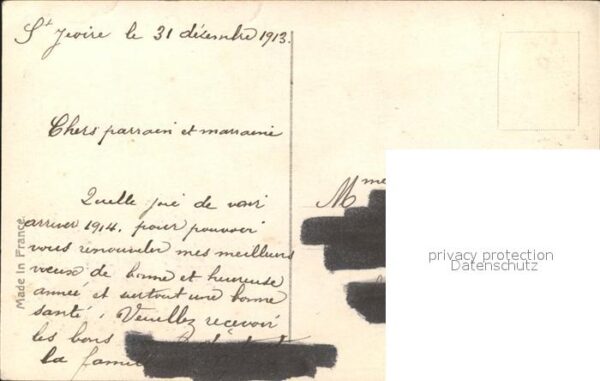 St Jeoire le 31 décembre 1913.
Chers parrain et marraine
Quelle joie de voir
arriver 1914, pour pouvoir
vous renouveler mes meilleurs
voeux de bonne et heureuse
année et surtout une bonne
santé. Veuillez recevoir
les bons
la famille
Mme
Made in France.
privacy protection
Datenschutz
privacy protection
Datenschutz